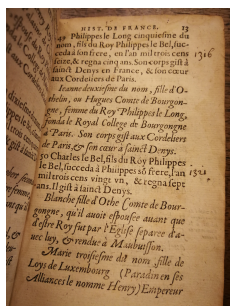 HIST. DE FRANCE. 13
49 Philippes le Long cinquiesme du
nom, fils du Roy Philippes le Bel, suc-
ceda à son frere, en l'an mil trois cens
seize, & regna cinq ans. Son corps gist à
sainct Denys en France, & son cœur
aux Cordeliers de Paris.
1316
Ieanne deuxiesme du nom, fille d'O-
thelin, ou Hugues Comte de Bourgon-
gne, femme du Roy Philippes le Long,
fonda le Royal College de Bourgongne
à Paris. Son corps gist aux Cordeliers
de Paris, & son cœur à sainct Denys.
50 Charles le Bel, fils du Roy Philippes
le Bel, succeda à Philippes sõ frere, l'an
mil trois cens vingt vn, & regna sept
ans. Il gist à sainct Denys.
1321
Blanche fille d'Othe Comte de Bour-
gongne, qu'il auoit espousee auant que
d'estre Roy fut par l'Eglise separee d'a-
uec luy, & rendue à Maubuisson.
Marie troisiesme du nom, fille de
Loys de Luxembourg (Paradin en ses
Alliances le nomme Henry) Empereur